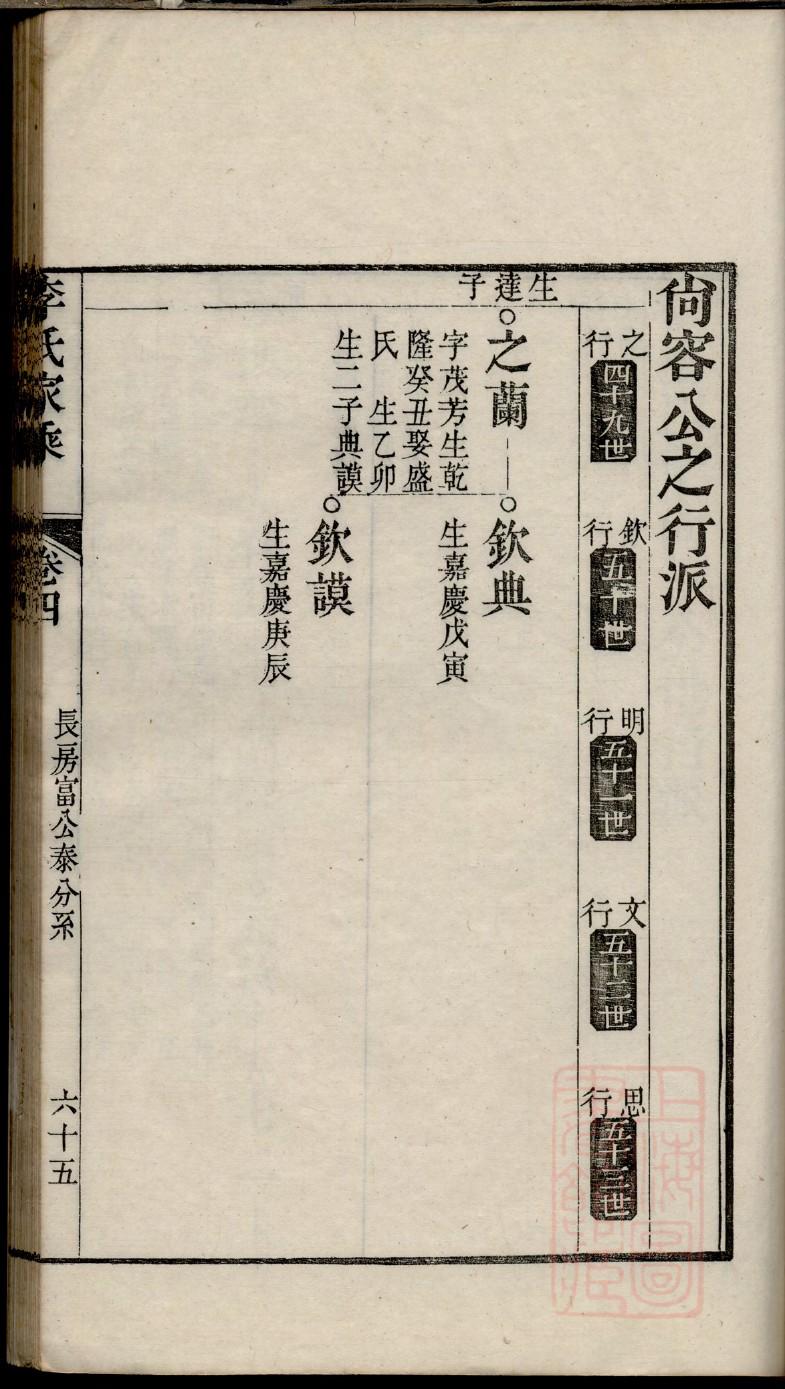 尙容公之行派
之行 四十九世
欽行 五十世
明行 五十一世
文行 五十二世
思行 五十三世
生達子
之蘭
字茂芳生乾
隆癸丑娶盛
氏 生乙卯
生二子典謨
欽典
生嘉慶戊寅
欽謨
生嘉慶庚辰
李氏家乘
卷四
長房富公泰分系
六十五